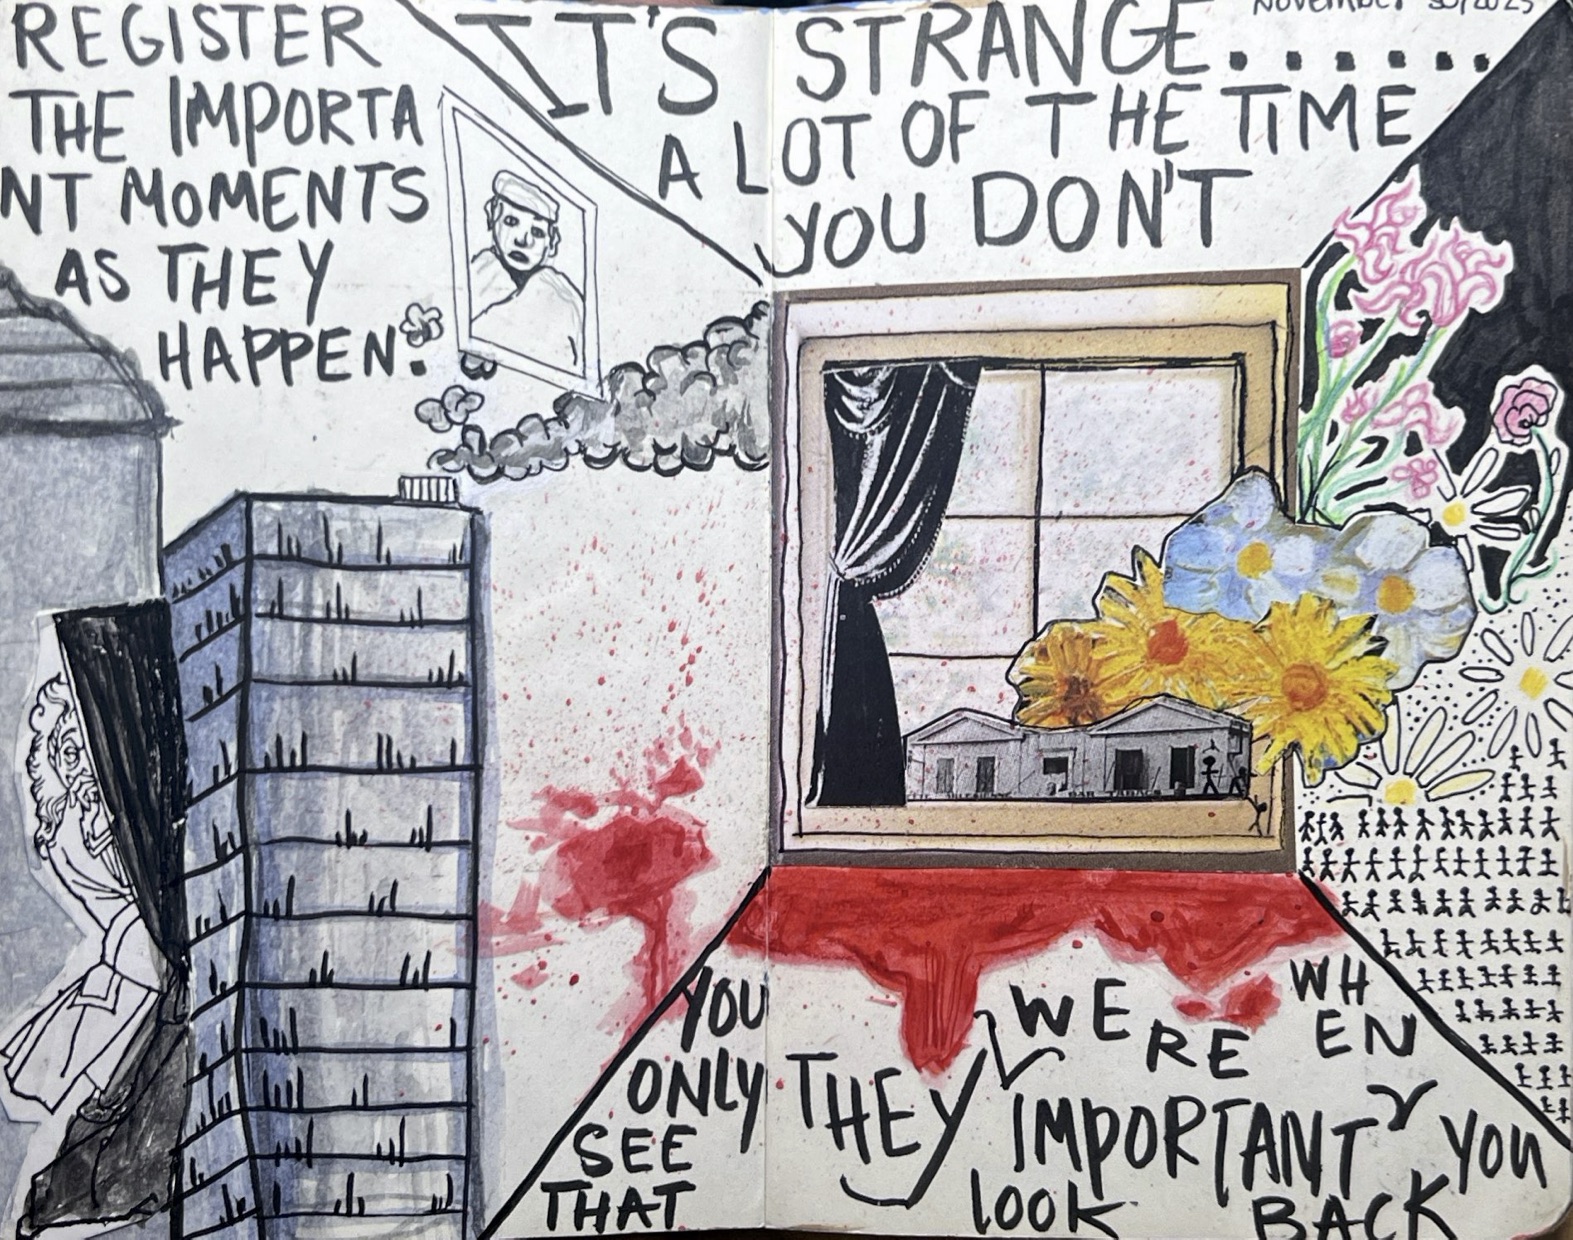 November 30/2025
IT'S STRANGE.......
A LOT OF THE TIME
YOU DON'T
REGISTER
THE IMPORTA
NT MOMENTS
AS THEY
HAPPEN.
YOU
ONLY
SEE
THAT
THEY WERE
IMPORTANT
WHEN
YOU
LOOK BACK